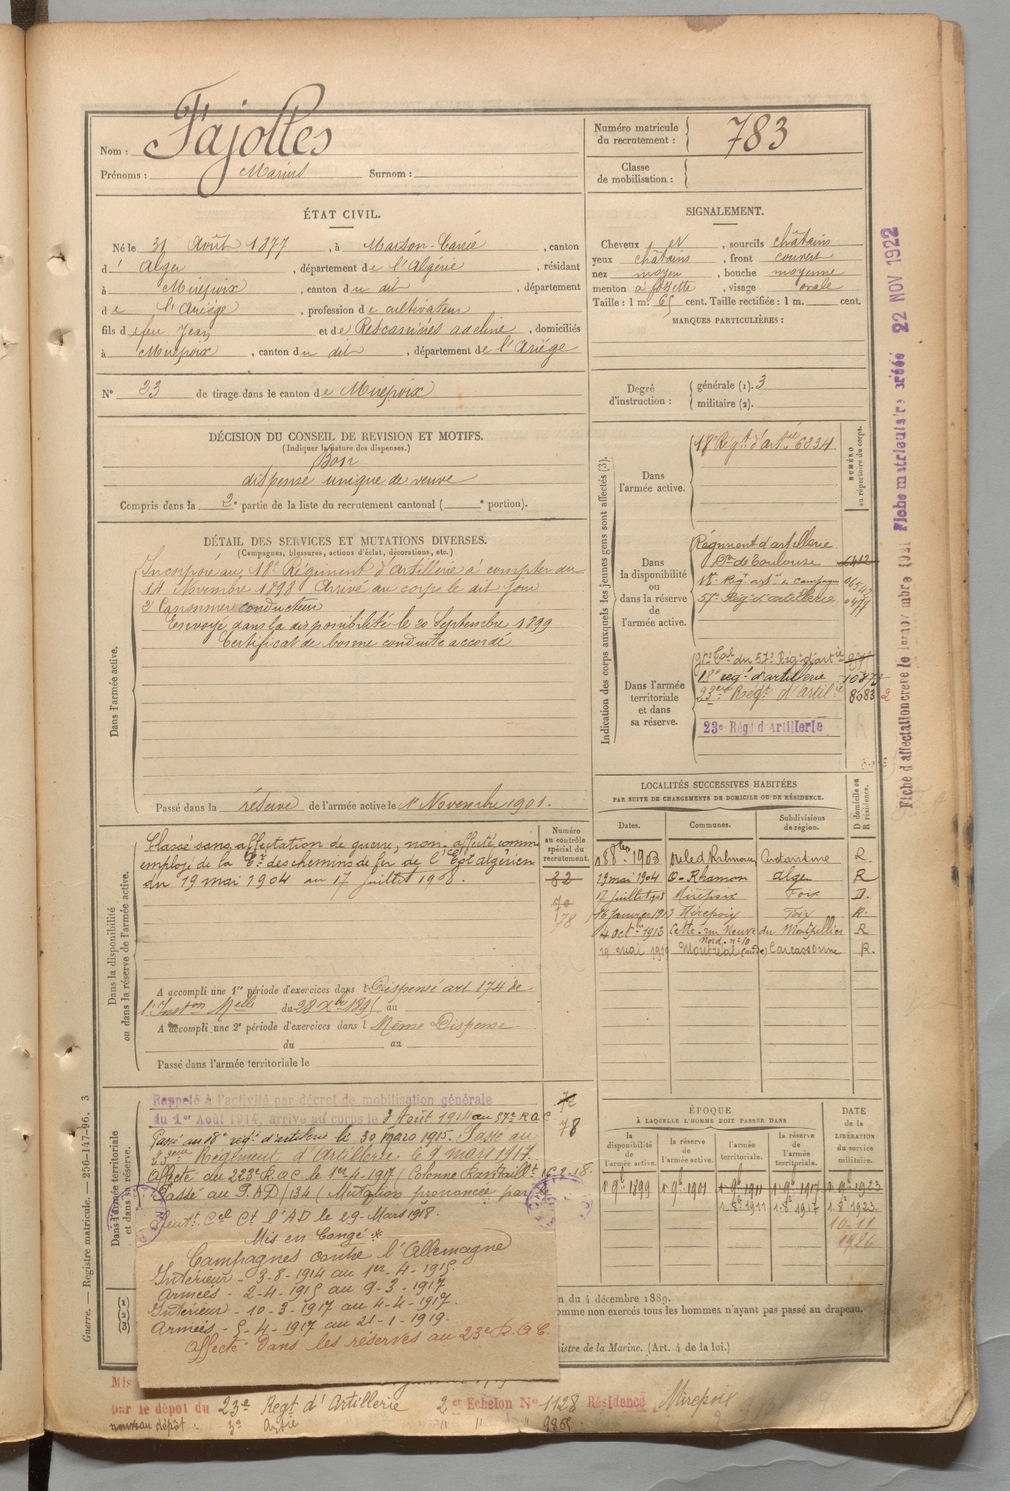 Nom : Fajolles
Prénoms : Marius Surnom :
Numéro matricule du recrutement : 783
Classe de mobilisation :
ÉTAT CIVIL.
Né le 31 Août 1877, à Maison-Carrée, canton
d' Alger, département de l'Algérie, résidant
à Mirepoix, canton du dit, département
de l'Ariège, profession de cultivateur
fils de feu Jean et de Rescanières adeline, domiciliés
à Mirepoix, canton du dit, département de l'Ariège
N° 23 de tirage dans le canton de Mirepoix
SIGNALEMENT.
Cheveux, sourcils châtains
yeux châtains, front couvert
nez moyen, bouche moyenne
menton à fossette, visage ovale
Taille : 1 m. 65 cent. Taille rectifiée : 1 m. cent.
MARQUES PARTICULIÈRES :
Degré d'instruction : générale (1). 3
militaire (2).
DÉCISION DU CONSEIL DE REVISION ET MOTIFS.
(Indiquer la nature des dispenses.)
Bon
dispense unique de veuve
Compris dans la 2e partie de la liste du recrutement cantonal ( e portion).
DÉTAIL DES SERVICES ET MUTATIONS DIVERSES.
(Campagnes, blessures, actions d'éclat, décorations, etc.)
Dans l'armée active.
Incorporé au 18e Régiment d'artillerie à compter du
1er Novembre 1898 Arrivé au corps le dit jour
2e Canonnier conducteur
Envoyé dans la disponibilité le 20 Septembre 1899
Certificat de bonne conduite accordé
Passé dans la réserve de l'armée active le 1er Novembre 1901.
Indication des corps auxquels les jeunes gens sont affectés (3).
NUMÉRO au répertoire du corps.
Dans l'armée active.
18e Régt d'artie 6334
Dans la disponibilité ou dans la réserve de l'armée active.
Régiment d'artillerie
Don de Toulouse 6412
18e Rég art de campagne
57e Rég d'artillerie
Dans l'armée territoriale et dans sa réserve.
18e régt d'artillerie
23e Régt d'Artie 8083
23e Régt d'Artillerie
Fiche matriculaire créée 22 NOV 1922
Dans la disponibilité ou dans la réserve de l'armée active.
Classé sans affectation de guerre, non-affecté, comme
employé de la Cie des chemins de fer de l'Est algérien
du 19 mai 1904 au 17 juillet 1908.
Numéro au contrôle spécial du recrutement.
82
70
78
A accompli une 1re période d'exercices dans l Dispensé art 174 de
l'Inston Melle du 28 Xbre 1895 au
A accompli une 2e période d'exercices dans l Même Dispense
du au
Passé dans l'armée territoriale le
LOCALITÉS SUCCESSIVES HABITÉES
PAR SUITE DE CHANGEMENTS DE DOMICILE OU DE RÉSIDENCE.
Dates. Communes. Subdivisions de région. D domicile ou R résidence.
1903 Constantine R.
19 mai 1904 O-Rhamon Alger R
17 juillet 1908 Mirepoix Foix D.
16 janvier 1913 Mirepoix Foix R.
4 octbre 1913 Cette Montpellier R
19 mai 1919 Montréal (aude) Carcassonne R.
Dans l'armée territoriale et dans sa réserve.
Rappelé à l'activité par décret de mobilisation générale
du 1er Août 1914, arrivé au corps le 3 Août 1914 au 57e RAC
Passé au 18e régt d'artillerie le 30 mars 1915. Passé au
23eme Régiment d'Artillerie le 9 mars 1917.
Affecté au 223e R.A.C le 1er-4-1917 (Colonne Ravitaillt 16-2-18.
Passé au P.A.D/134 (Mutation prononcée par
Lieut. Cel Ct l'AD le 29-Mars 1918.
Mis en Congé
Campagnes contre l'Allemagne
Intérieur - 3-8-1914 au 1er-4-1915.
Armées - 2-4-1915 au 9-3-1917
Intérieur - 10-3-1917 au 4-4-1917.
Armées - 5-4-1917 au 21-1-1919.
Affecté dans les réserves au 23e R.A.C.
78
ÉPOQUE
À LAQUELLE L'HOMME DOIT PASSER DANS
la disponibilité de l'armée active. la réserve de l'armée active. l'armée territoriale. la réserve de l'armée territoriale.
DATE DE LA LIBÉRATION DU service militaire.
1 9bre 1899 1 9bre 1901 1 9bre 1911 1 9bre 1917 1 9bre 1923
1.8bre 1911 1.8bre 1917 1.8bre 1923
10-11
1926
on du 4 décembre 1889.
omme non exercés tous les hommes n'ayant pas passé au drapeau.
nistre de la Marine. (Art. 4 de la loi.)
Mis
par le dépôt du 23e Regt d'Artillerie 2er Echelon N° 1128 Résidence Mirepoix
nouveau dépôt : 3e Artie " " 9865
Guerre. — Registre matricule. — 256-147-96. 3